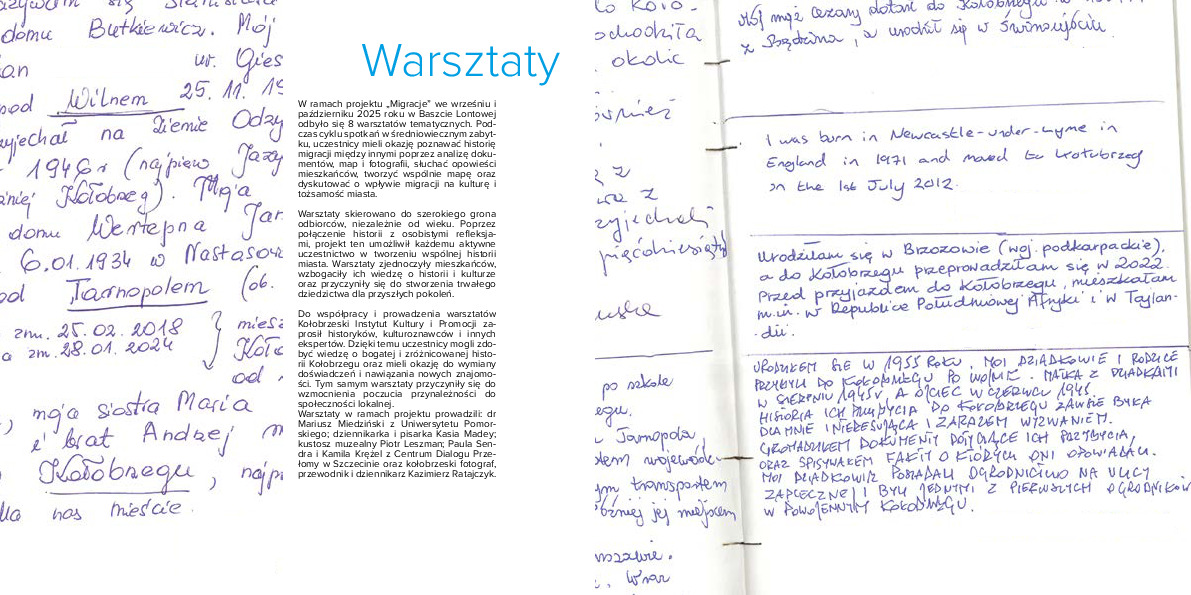 domu Butkiewicz. Mój
ur. Gies
pod Wilnem 25. 11. 19
yjechał na Ziemie Odzy
1946 r (najpierw Jazy
niej Kołobrzeg). Moja
domu Wertepna Jar
6.01.1934 w Nastasow
pod Tarnopolem (ob.
zm. 25.02.2018 miesz
a zm. 28.01.2024 Koło
od
), moja siostra Maria
i brat Andrzej m
Kołobrzegu, najp
dla nas mieście.
Warsztaty
W ramach projektu „Migracje" we wrześniu i
październiku 2025 roku w Baszcie Lontowej
odbyło się 8 warsztatów tematycznych. Pod-
czas cyklu spotkań w średniowiecznym zabyt-
ku, uczestnicy mieli okazję poznawać historię
migracji między innymi poprzez analizę doku-
mentów, map i fotografii, słuchać opowieści
mieszkańców, tworzyć wspólnie mapę oraz
dyskutować o wpływie migracji na kulturę i
tożsamość miasta.
Warsztaty skierowano do szerokiego grona
odbiorców, niezależnie od wieku. Poprzez
połączenie historii z osobistymi refleksja-
mi, projekt ten umożliwił każdemu aktywne
uczestnictwo w tworzeniu wspólnej historii
miasta. Warsztaty zjednoczyły mieszkańców,
wzbogaciły ich wiedzę o historii i kulturze
oraz przyczyniły się do stworzenia trwałego
dziedzictwa dla przyszłych pokoleń.
Do współpracy i prowadzenia warsztatów
Kołobrzeski Instytut Kultury i Promocji za-
prosił historyków, kulturoznawców i innych
ekspertów. Dzięki temu uczestnicy mogli zdo-
być wiedzę o bogatej i zróżnicowanej histo-
rii Kołobrzegu oraz mieli okazję do wymiany
doświadczeń i nawiązania nowych znajomo-
ści. Tym samym warsztaty przyczyniły się do
wzmocnienia poczucia przynależności do
społeczności lokalnej.
Warsztaty w ramach projektu prowadzili: dr
Mariusz Miedziński z Uniwersytetu Pomor-
skiego; dziennikarka i pisarka Kasia Madey;
kustosz muzealny Piotr Leszman; Paula Sen-
dra i Kamila Krężel z Centrum Dialogu Prze-
łomy w Szczecinie oraz kołobrzeski fotograf,
przewodnik i dziennikarz Kazimierz Ratajczyk.
lo Koło-
ochodziła
okolic
ównież
z z
wa z
zyjechali
pięćdziesiątych
uska
po szkole
egu.
Tarnopola,
stem wojewódz
ym transportem
óźniej jej miejscem
rszawie.
Wraz
Mój mąż Cezary dotarł do Kołobrzegu w
z Będzina, a urodził się w Świnoujściu.
I was born in Newcastle-under-Lyme in
England in 1971 and moved to Kołobrzeg
on the 1st July 2012.
Urodziłam się w Brzozowie (woj. podkarpackie),
a do Kołobrzegu przeprowadziłam się w 2022.
Przed przyjazdem do Kołobrzegu, mieszkałam
m.in. w Republice Południowej Afryki i w Tajlan-
dii.
URODZIŁEM SIĘ W 1955 ROKU. MOI DZIADKOWIE I RODZICE
PRZYBYLI DO KOŁOBRZEGU PO WOJNIE. MATKA Z DZIADKAMI
W SIERPNIU 1945 r. A OJCIEC W CZERWCU 1945.
HISTORIA ICH PRZYBYCIA DO KOŁOBRZEGU ZAWSZE BYŁA
DLA MNIE INTERESUJĄCA I ZARAZEM WYZWANIEM.
GROMADZIŁEM DOKUMENTY DOTYCZĄCE ICH PRZYBYCIA,
ORAZ SPISYWAŁEM FAKTY O KTÓRYCH ONI OPOWIADALI.
MOI DZIADKOWIE POSIADALI OGRODNICTWO NA ULICY
ZAPLECZNEJ I BYLI JEDNYMI Z PIERWSZYCH OGRODNIKÓW
W POWOJENNYM KOŁOBRZEGU.